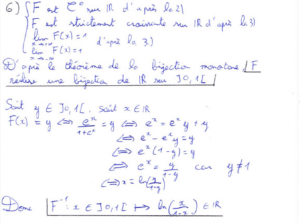 6) { F est C° sur IR d'après 1.2)
F est strictement croissante sur IR d'après 1.3)
lim F(x) = 1
x→+∞
lim F(x) = 1 d'après 1.3.)
D'après le théorème de la bijection monotone, F
réalise une bijection de IR sur ]0,1[
Soit y ∈ ]0,1[, soit x ∈ IR
F(x) = y ⟺ e^x/(1+e^x) = y ⟺ e^x = e^x y + y
⟺ e^x - e^x y = y
⟺ e^x (1-y) = y
⟺ e^x = y/(1-y) car y ≠ 1
⟺ x = ln(y/(1-y))
Donc F^-1 : x ∈ ]0,1[ ↦ ln(x/(1-x)) ∈ IR